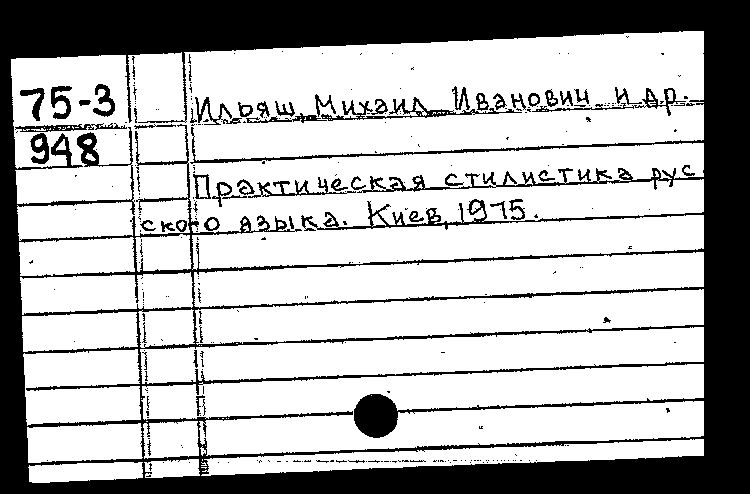 75-3
948
Ильяш, Михаил Иванович и др.
Практическая стилистика рус-
ского языка. Киев, 1975.